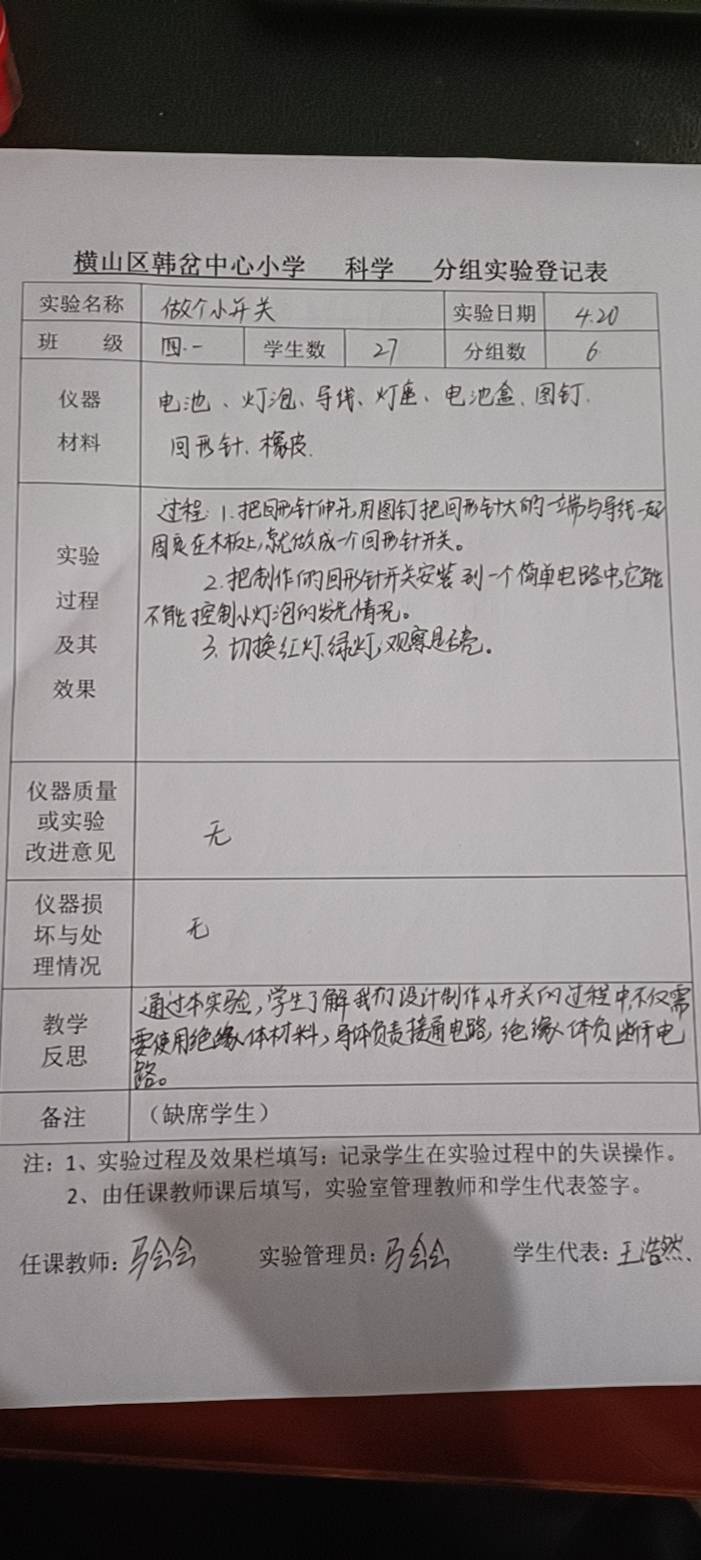 横山区韩岔中心小学 科学 分组实验登记表
实验名称 做个小开关 实验日期 4.20
班 级 四.一 学生数 27 分组数 6
仪器 材料
电池、灯泡、导线、灯座、电池盒、图钉.
回形针、橡皮.
实验 过程 及其 效果
过程:1.把回形针伸开,用图钉把回形针大的一端与导线一起
固定在木板上,就做成一个回形针开关。
2.把制作的回形针开关安装到一个简单电路中,它能
不能控制小灯泡的发光情况。
3.切换红灯、绿灯,观察是否亮。
仪器质量
或实验
改进意见
无
仪器损
坏与处
理情况
无
教学
反思
通过本实验,学生了解我们设计制作小开关的过程中,不仅需
要使用绝缘体材料,导体负责接通电路,绝缘体负断开电
路。
备注 (缺席学生)
注:1、实验过程及效果栏填写:记录学生在实验过程中的失误操作。
2、由任课教师课后填写,实验室管理教师和学生代表签字。
任课教师:马会会 实验管理员:马会会 学生代表:王浩然.